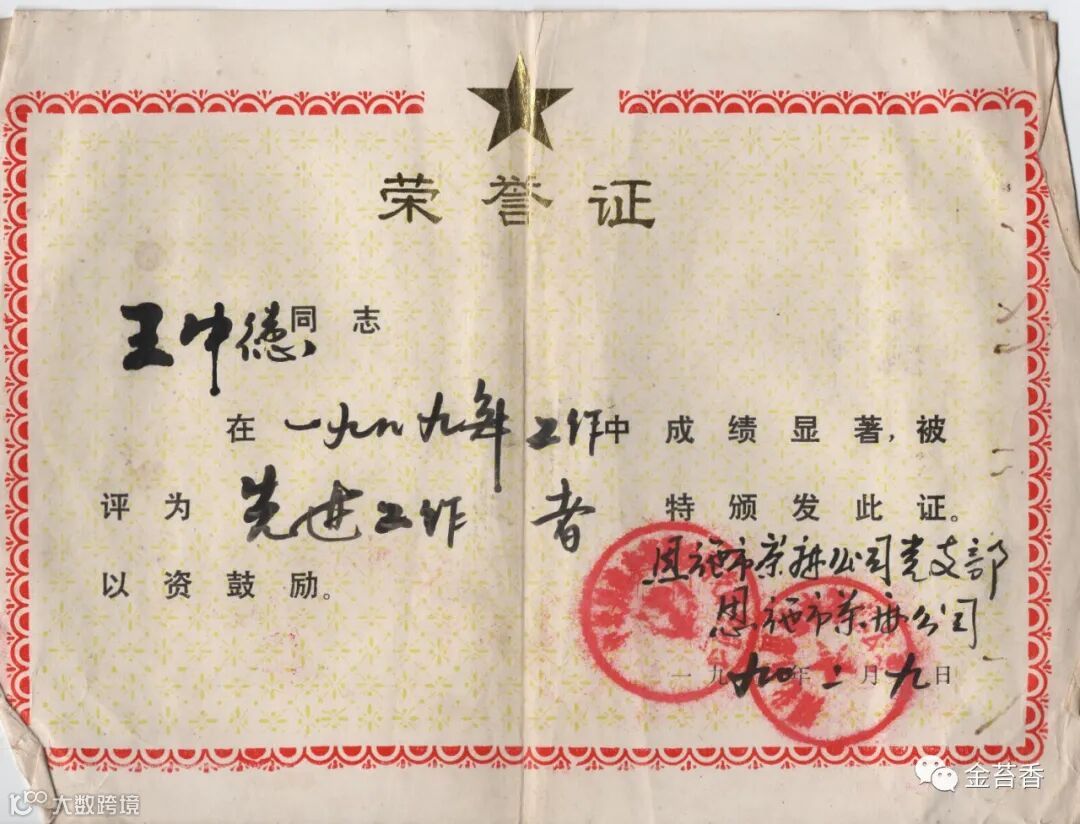 荣誉证
王中德同志
在一九八九年工作中成绩显著,被
评为先进工作者 特颁发此证。
以资鼓励。
恩施市茶麻公司党支部
恩施市茶麻公司
一九九〇年二月九日
金苔香
100 大数跨境